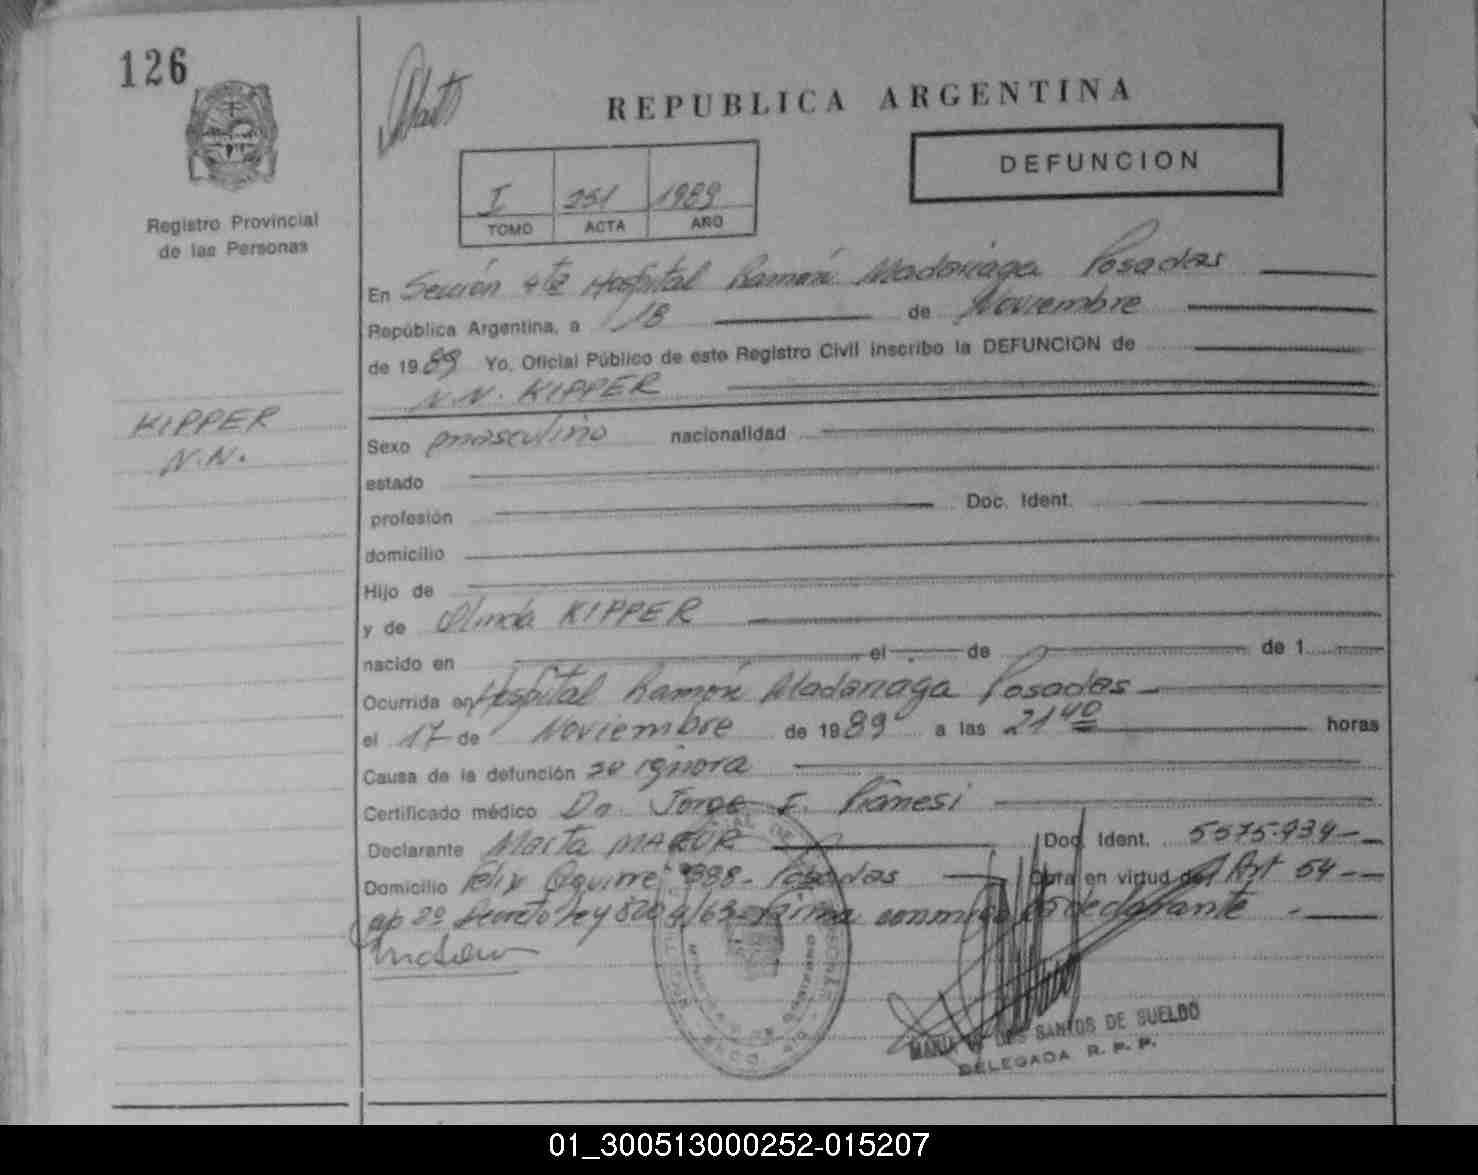 126
REPUBLICA ARGENTINA
DEFUNCION
I 251 1989
TOMO ACTA AÑO
Registro Provincial
de las Personas
En Sección 4ta Hospital Ramón Madariaga Posadas
República Argentina, a 18 de Noviembre
de 1989 Yo, Oficial Público de este Registro Civil inscribo la DEFUNCION de
N.N. KIPPER
KIPPER
N.N.
Sexo masculino nacionalidad
estado
profesión Doc. Ident.
domicilio
Hijo de
y de Olinda KIPPER
nacido en el de de 1
Ocurrida en Hospital Ramón Madariaga Posadas
el 17 de Noviembre de 1989 a las 21 40 horas
Causa de la defunción se ignora
Certificado médico Dr. Jorge E. Pianesi
Declarante Marta Doc. Ident. 5575.934
Domicilio Felix Aguirre Posadas Obra en virtud del Art 54
ap 2º Decreto Ley 8204/63 Firma conmigo la declarante
MARIA DE LOS SANTOS DE SUELDO
DELEGADA R. P. P.
01_300513000252-015207